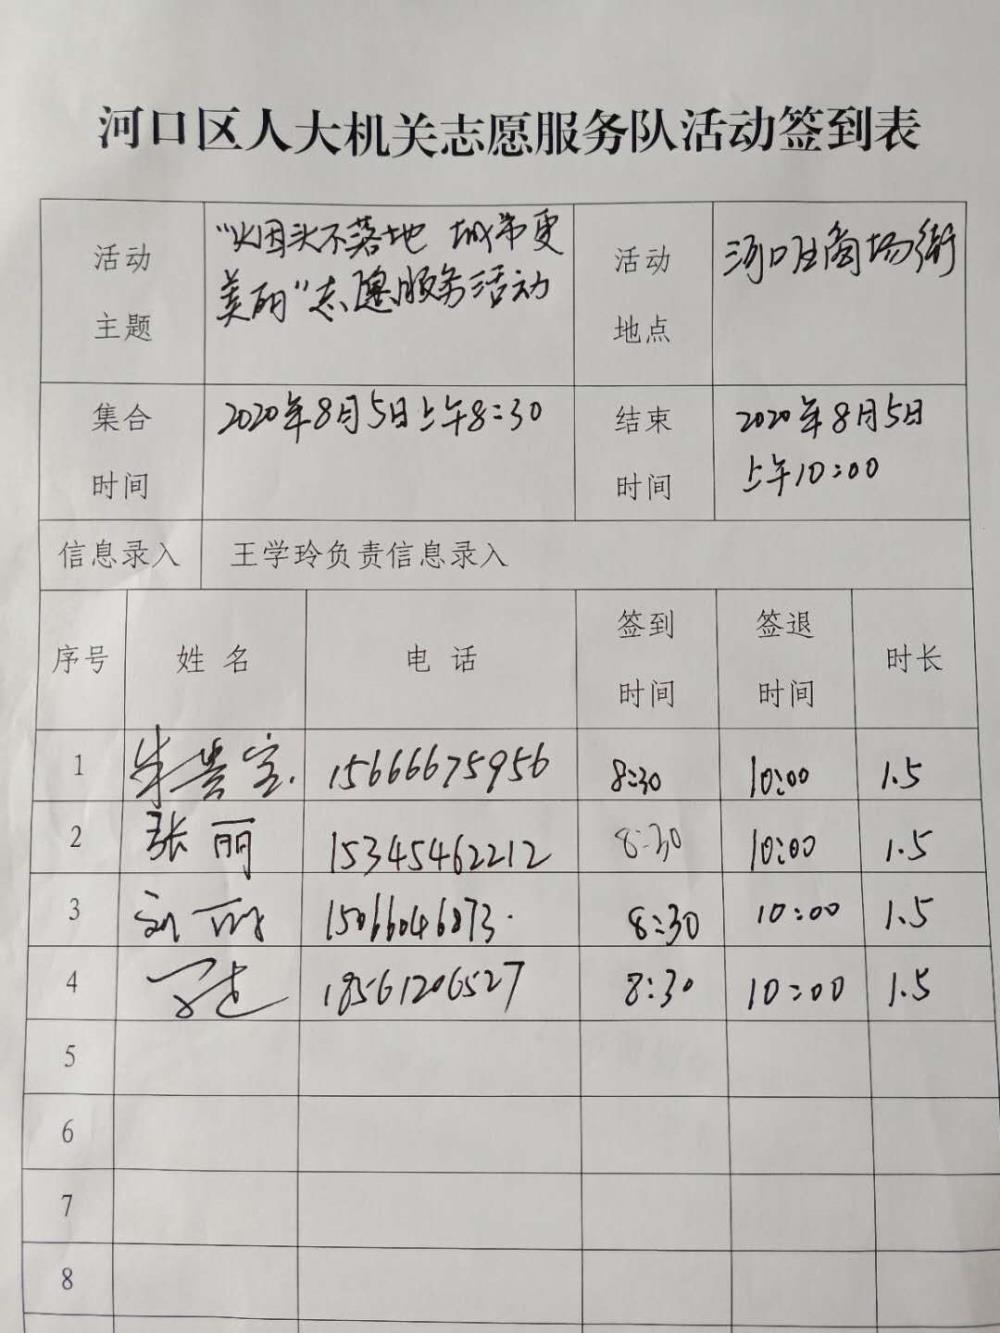 河口区人大机关志愿服务队活动签到表
活动主题 "烟头不落地 城市更美丽"志愿服务活动 活动地点 河口区商场街
集合时间 2020年8月5日上午8:30 结束时间 2020年8月5日上午10:00
信息录入 王学玲负责信息录入
序号 姓名 电话 签到时间 签退时间 时长
1 朱贵宝 15666675956 8:30 10:00 1.5
2 张丽 15345462212 8:30 10:00 1.5
3 刘丽 15066046873 8:30 10:00 1.5
4 18561206527 8:30 10:00 1.5
5
6
7
8